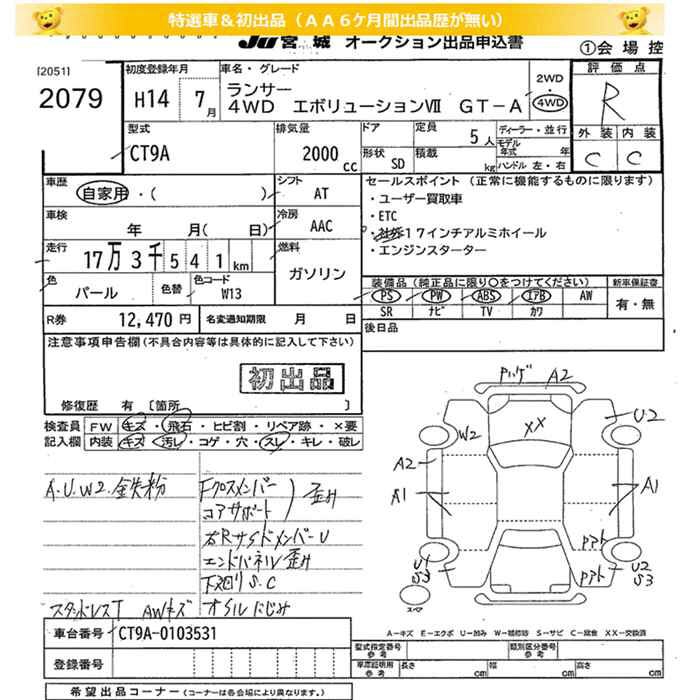 特選車＆初出品（ＡＡ６ケ月間出品歴が無い）
JU宮城 オークション出品申込書
①会場控
[2051]
2079
初度登録年月
H14 7月
車名・グレード
ランサー
4WD エボリューションⅦ GT-A
2WD
・
4WD
評価点
R
外装 内装
C C
型式
CT9A
排気量
2000 cc
ドア
形状 SD
定員 5人
積載 kg
ディーラー・並行
モデル年式 年
ハンドル 左・右
車歴
自家用・( )
シフト
AT
車検
年 月( 日)
冷房
AAC
走行
17万3千541km
燃料
ガソリン
色
パール
色替
色コード
W13
セールスポイント（正常に機能するものに限ります）
・ユーザー買取車
・ETC
17インチアルミホイール
・エンジンスターター
装備品（純正品に限り○をつけてください）
PS PW ABS エアB AW
SR ナビ TV カワ
新車保証書
有・無
R券 12,470円
名変通知期限 月 日
後日品
注意事項申告欄(不具合内容等は具体的に記入して下さい)
初出品
修復歴 有 [箇所 ]
検査員記入欄
FW キズ・飛石・ヒビ割・リペア跡・×要
内装 キズ・汚し・コゲ・穴・スレ・キレ・破レ
A.U.W2.鉄粉
Fクロスメンバー
コアサポート
歪み
右RサイドメンバーU
エンドパネル歪み
下廻りS.C
スタッドレスT AWキズ オイルにじみ
A2
XX
U2
W2
A2
A1
A1
U1
S3
U2
S3
スペア
A－キズ E－エクボ U－凹み W－補修跡 S－サビ C－腐食 XX－交換済
車台番号 CT9A-0103531
登録番号
型式指定番号
参考
類別区分番号
参考
車庫証明用
参考
長さ cm
幅 cm
高さ cm
希望出品コーナー(コーナーは各会場により異なります。)